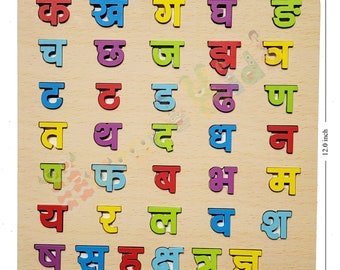 क ख ग घ ङ
च छ ज झ ञ
ट ठ ड ढ ण
त थ द ध न
प फ ब भ म
य र ल व श
ष स ह क्ष त्र ज्ञ
12.0 inch